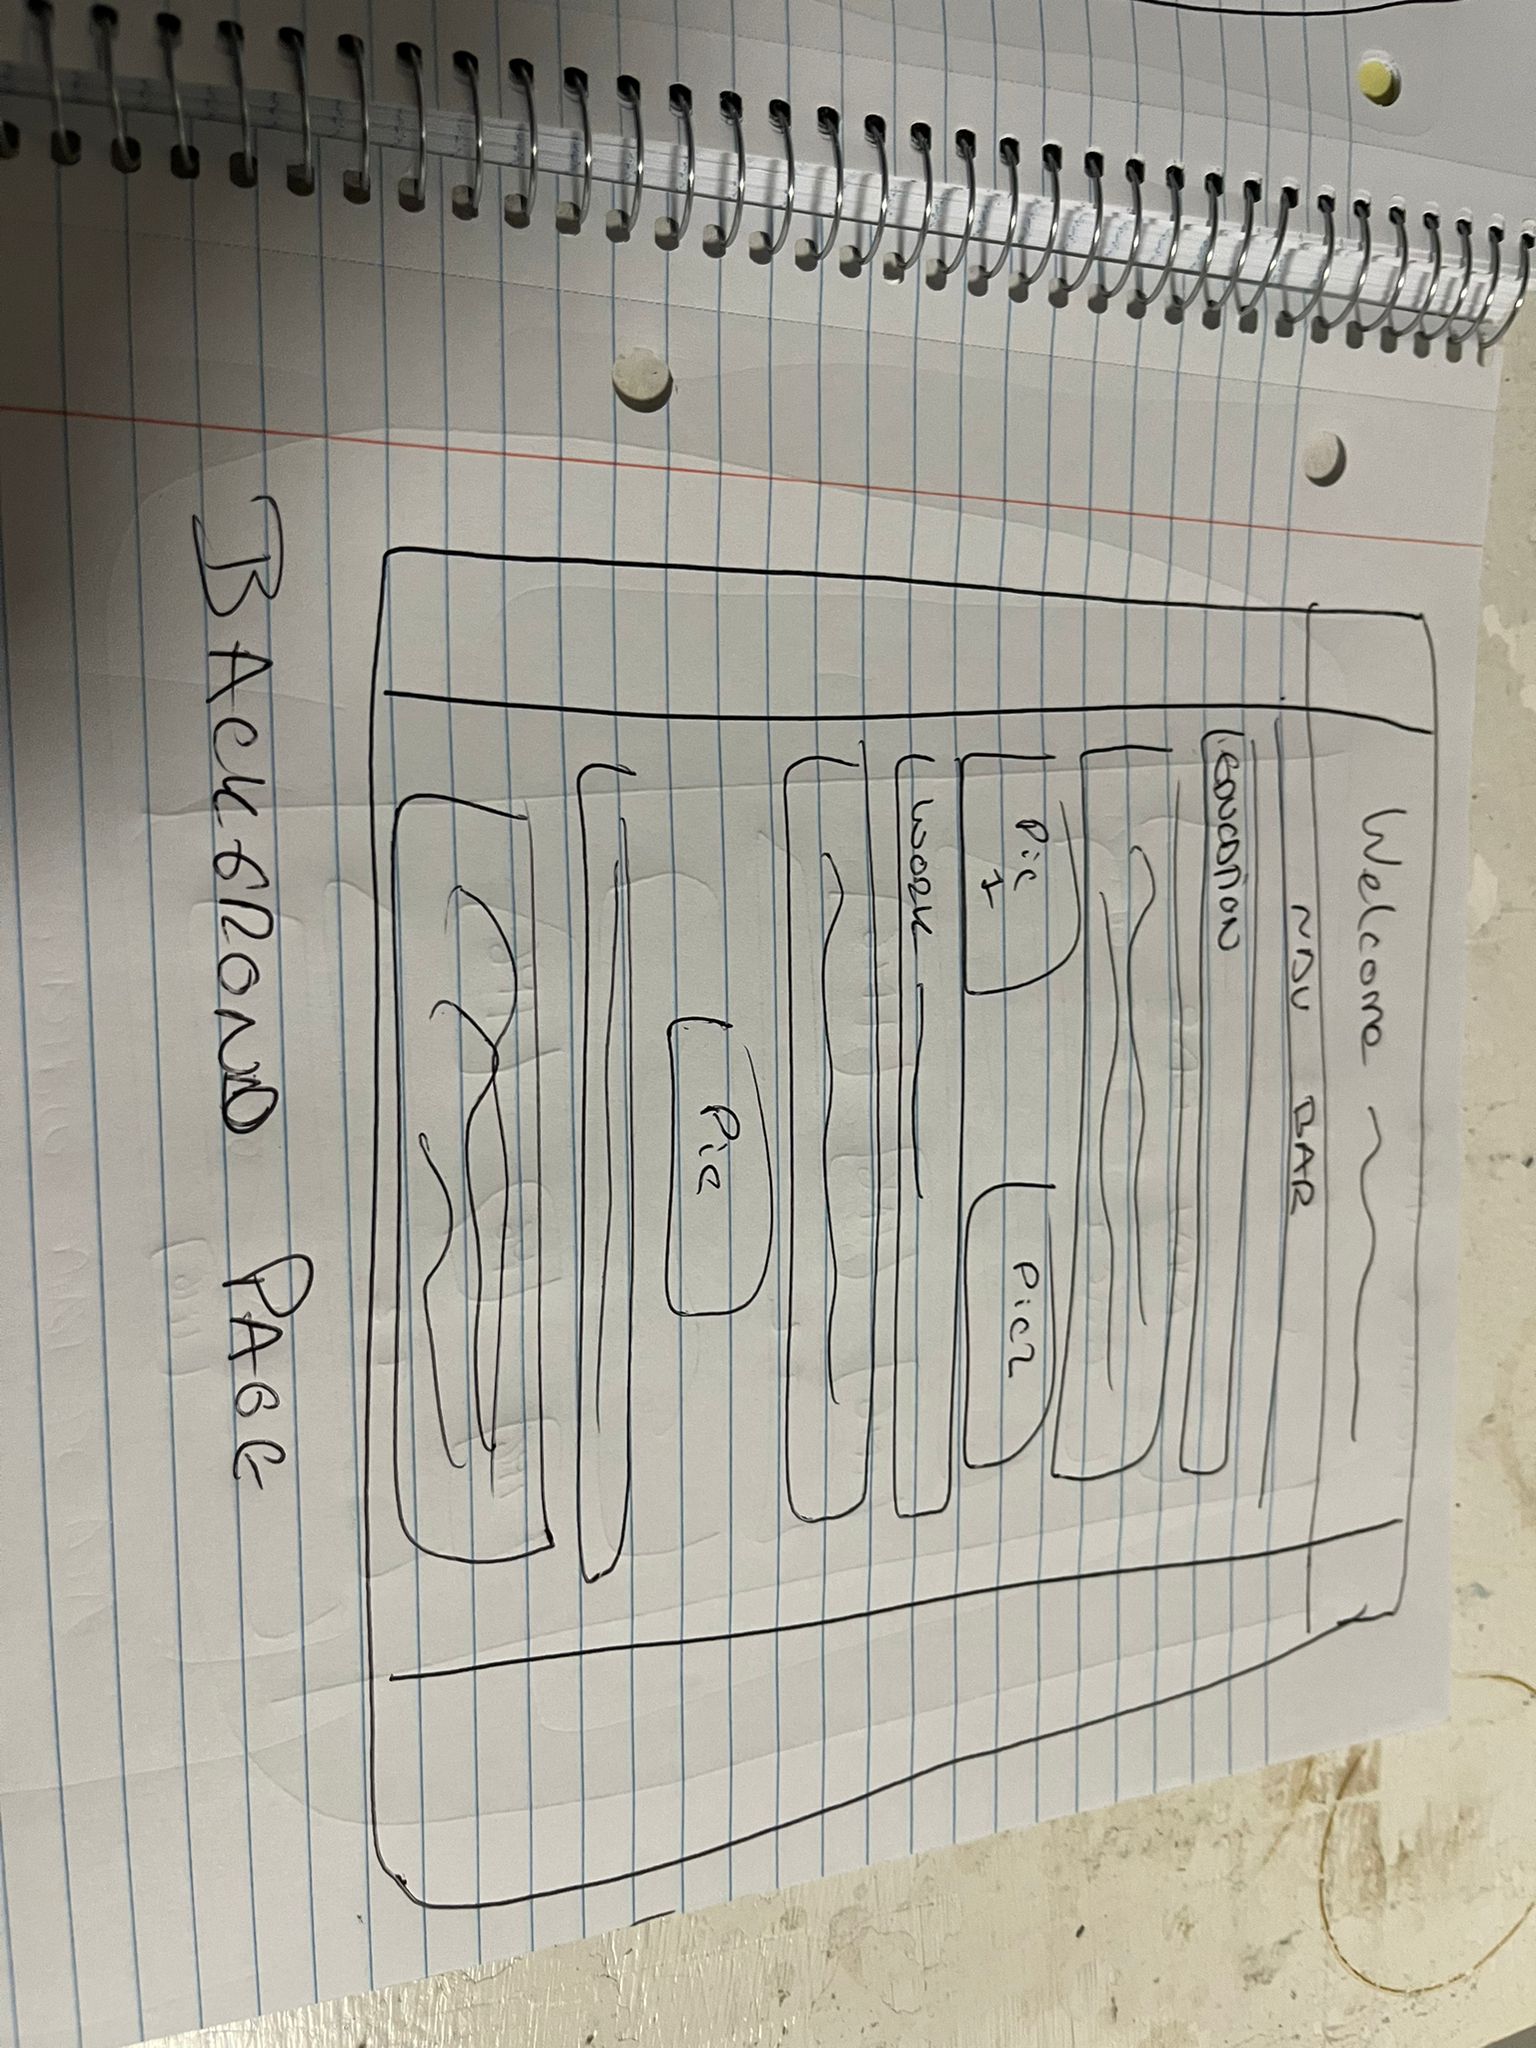 Welcome
NAV BAR
EDUCATION
Pic 1
Pic2
WORK
Pic
BACKGROND PAGE